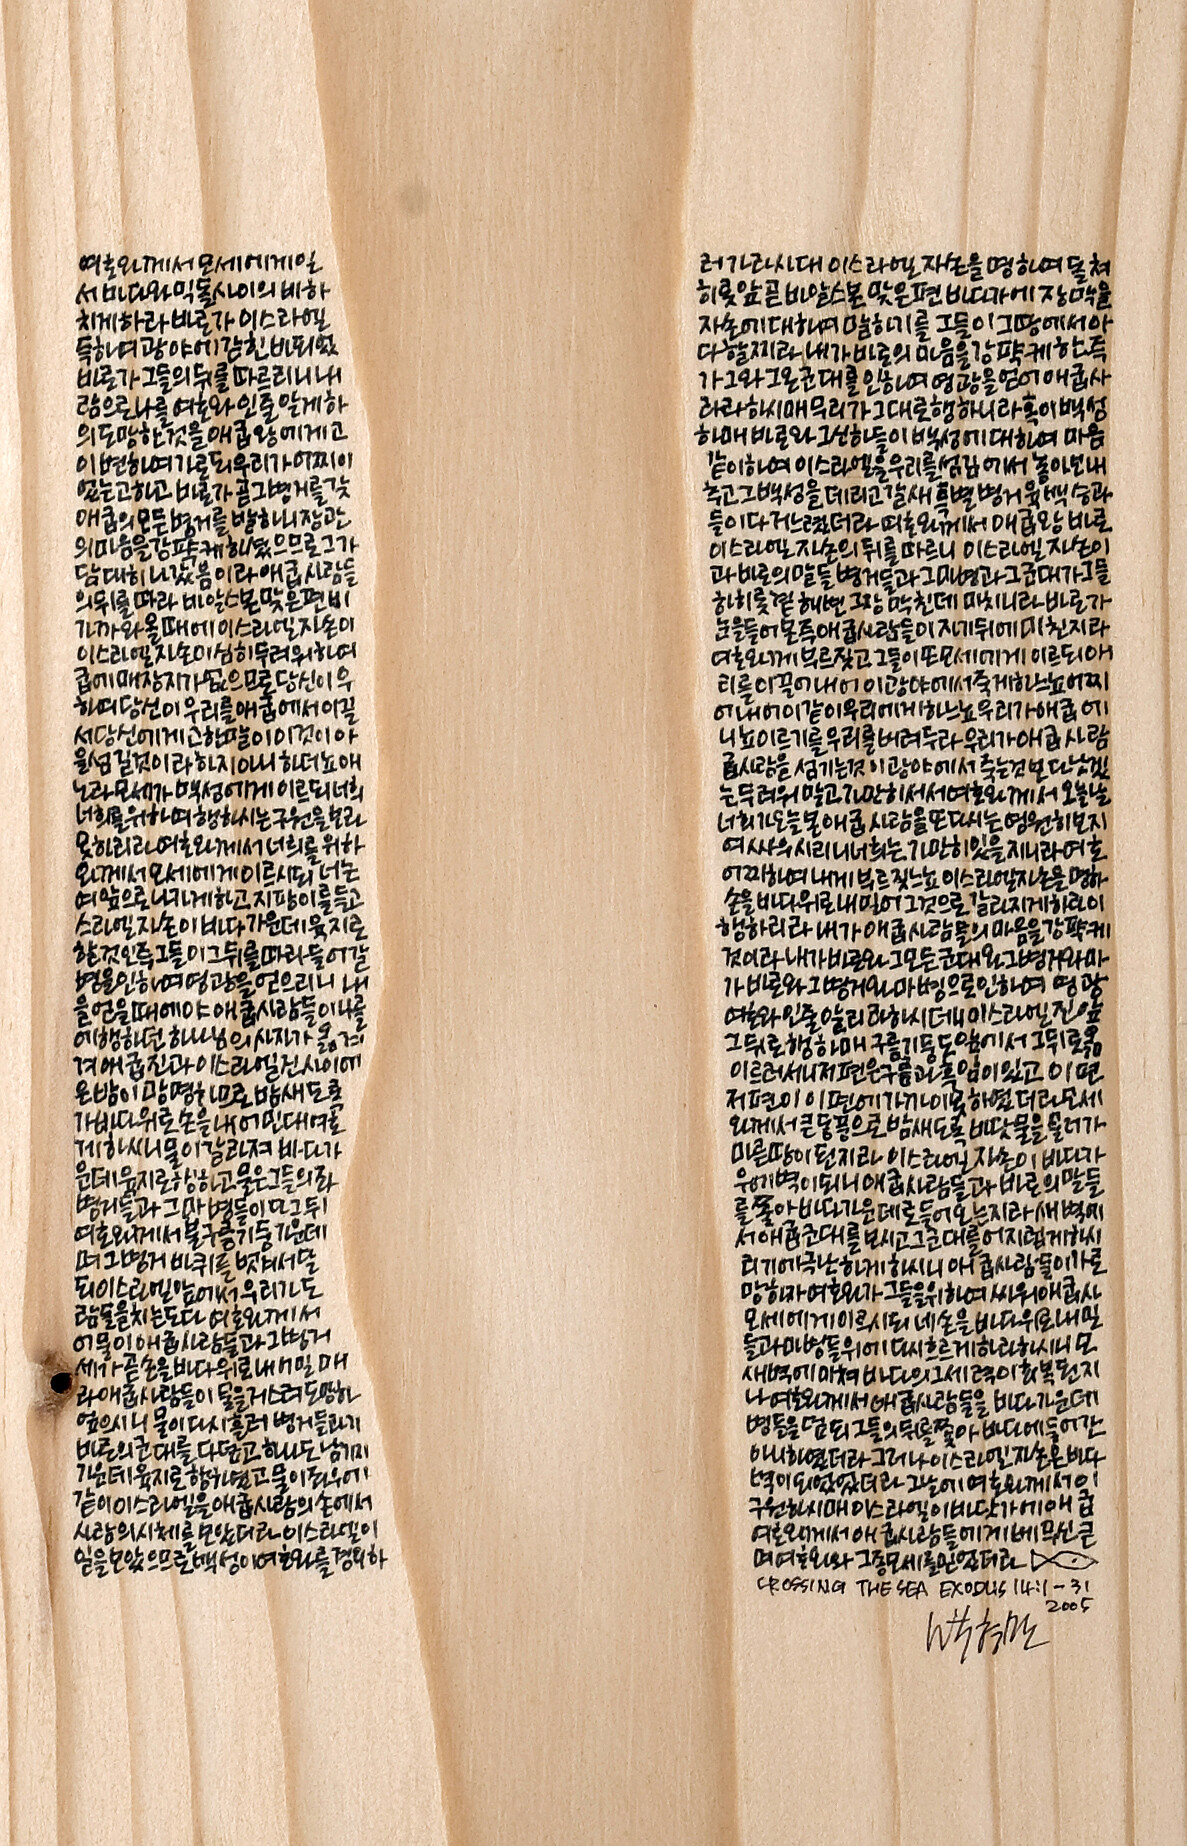 여호와께서 모세에게 일 러 가라사대 이스라엘 자손을 명하여 돌쳐
서 바다와 믹돌 사이의 비하 히롯 앞 곧 바알스본 맞은편 바닷가에 장막을
치게 하라 바로가 이스라엘 자손에 대하여 말하기를 그들이 그 땅에서 아
득하여 광야에 갇힌바 되었 다 할찌라 내가 바로의 마음을 강퍅케 한즉
바로가 그들의 뒤를 따르리니 내 가 그와 그 온 군대를 인하여 영광을 얻어 애굽 사
람으로 나를 여호와인줄 알게 하 리라 하시매 무리가 그대로 행하니라 혹이 백성
의 도망한 것을 애굽 왕에게 고 하매 바로와 그 신하들이 백성에 대하여 마음
이 변하여 가로되 우리가 어찌 이 같이 하여 이스라엘을 우리를 섬김에서 놓아 보내
었는고 하고 바로가 곧 그 병거를 갖 추고 그 백성을 데리고 갈새 특별 병거 육백 승과
애굽의 모든 병거를 발하니 장관 들이 다 거느렸더라 여호와께서 애굽 왕 바로
의 마음을 강퍅케 하셨으므로 그가 이스라엘 자손의 뒤를 따르니 이스라엘 자손이
담대히 나갔음이라 애굽 사람들 과 바로의 말들 병거들과 그 마병과 그 군대가 그들
의 뒤를 따라 바알스본 맞은편 비 하히롯 곁 해변 그 장막 친데 미치니라 바로가
가까와 올 때에 이스라엘 자손이 눈을 들어 본즉 애굽 사람들이 자기 뒤에 미친지라
이스라엘 자손이 심히 두려워하여 여호와께 부르짖고 그들이 또 모세에게 이르되 애
굽에 매장지가 없으므로 당신이 우 리를 이끌어 내어 이 광야에서 죽게 하느뇨 어찌
하여 당신이 우리를 애굽에서 이끌 어 내어 이같이 우리에게 하느뇨 우리가 애굽에
서 당신에게 고한 말이 이것이 아 니뇨 이르기를 우리를 버려두라 우리가 애굽 사람
을 섬길 것이라 하지 아니하더뇨 애 굽 사람을 섬기는 것이 광야에서 죽는 것보다 낫겠
노라 모세가 백성에게 이르되 너희 는 두려워 말고 가만히 서서 여호와께서 오늘날
너희를 위하여 행하시는 구원을 보라 너희가 오늘 본 애굽 사람을 또 다시는 영원히 보지
못하리라 여호와께서 너희를 위하 여 싸우시리니 너희는 가만히 있을지니라 여호
와께서 모세에게 이르시되 너는 어찌하여 내게 부르짖느뇨 이스라엘 자손을 명하
여 앞으로 나가게 하고 지팡이를 들고 손을 바다 위로 내밀어 그것으로 갈라지게 하라 이
스라엘 자손이 바다 가운데 육지로 행하리라 내가 애굽 사람들의 마음을 강퍅케
할 것인즉 그들이 그 뒤를 따라 들어갈 것이라 내가 바로와 그 모든 군대와 그 병거와 마
병을 인하여 영광을 얻으리니 내 가 바로와 그 병거와 마병으로 인하여 영광
을 얻을 때에야 애굽 사람들이 나를 여호와인줄 알리라 하시더니 이스라엘 진 앞
에 행하던 하나님의 사자가 옮겨 그 뒤로 행하매 구름 기둥도 앞에서 그 뒤로 옮
겨 애굽 진과 이스라엘 진 사이에 이르러 서니 저 편은 구름과 흑암이 있고 이 편
은 밤이 광명하므로 밤새도록 저 편이 이 편에 가까이 못하였더라 모세
가 바다 위로 손을 내어민대 여호 와께서 큰 동풍으로 밤새도록 바닷물을 물러가
게 하시니 물이 갈라져 바다가 마른 땅이 된지라 이스라엘 자손이 바다 가
운데 육지로 행하고 물은 그들의 좌 우에 벽이 되니 애굽 사람들과 바로의 말들
병거들과 그 마병들이 다 그 뒤 를 쫓아 바다 가운데로 들어오는지라 새벽에
여호와께서 불 구름 기둥 가운데 서 애굽 군대를 보시고 그 군대를 어지럽게 하시
며 그 병거 바퀴를 벗겨서 달 리기에 극난하게 하시니 애굽 사람들이 가로
되 이스라엘 앞에서 우리가 도 망하자 여호와가 그들을 위하여 싸워 애굽 사
람들을 치는도다 여호와께서 모세에게 이르시되 네 손을 바다 위로 내밀
어 물이 애굽 사람들과 그 병거 들과 마병들 위에 다시 흐르게 하라 하시니 모
세가 곧 손을 바다 위로 내어밀매 새벽에 미쳐 바다의 그 세력이 회복된지
라 애굽 사람들이 물을 거스려 도망하 나 여호와께서 애굽 사람들을 바다 가운데
엎으시니 물이 다시 흘러 병거들과 기 병들을 덮되 그들의 뒤를 쫓아 바다에 들어간
바로의 군대를 다 덮고 하나도 남기지 아니하였더라 그러나 이스라엘 자손은 바다
가운데 육지로 행하였고 물이 좌우에 벽이 되었었더라 그날에 여호와께서 이
같이 이스라엘을 애굽 사람의 손에서 구원하시매 이스라엘이 바닷가에 애굽
사람의 시체를 보았더라 이스라엘이 여호와께서 애굽 사람들에게 베푸신 큰
일을 보았으므로 백성이 여호와를 경외하 며 여호와와 그 종 모세를 믿었더라
CROSSING THE SEA EXODUS 14:1-31
2005